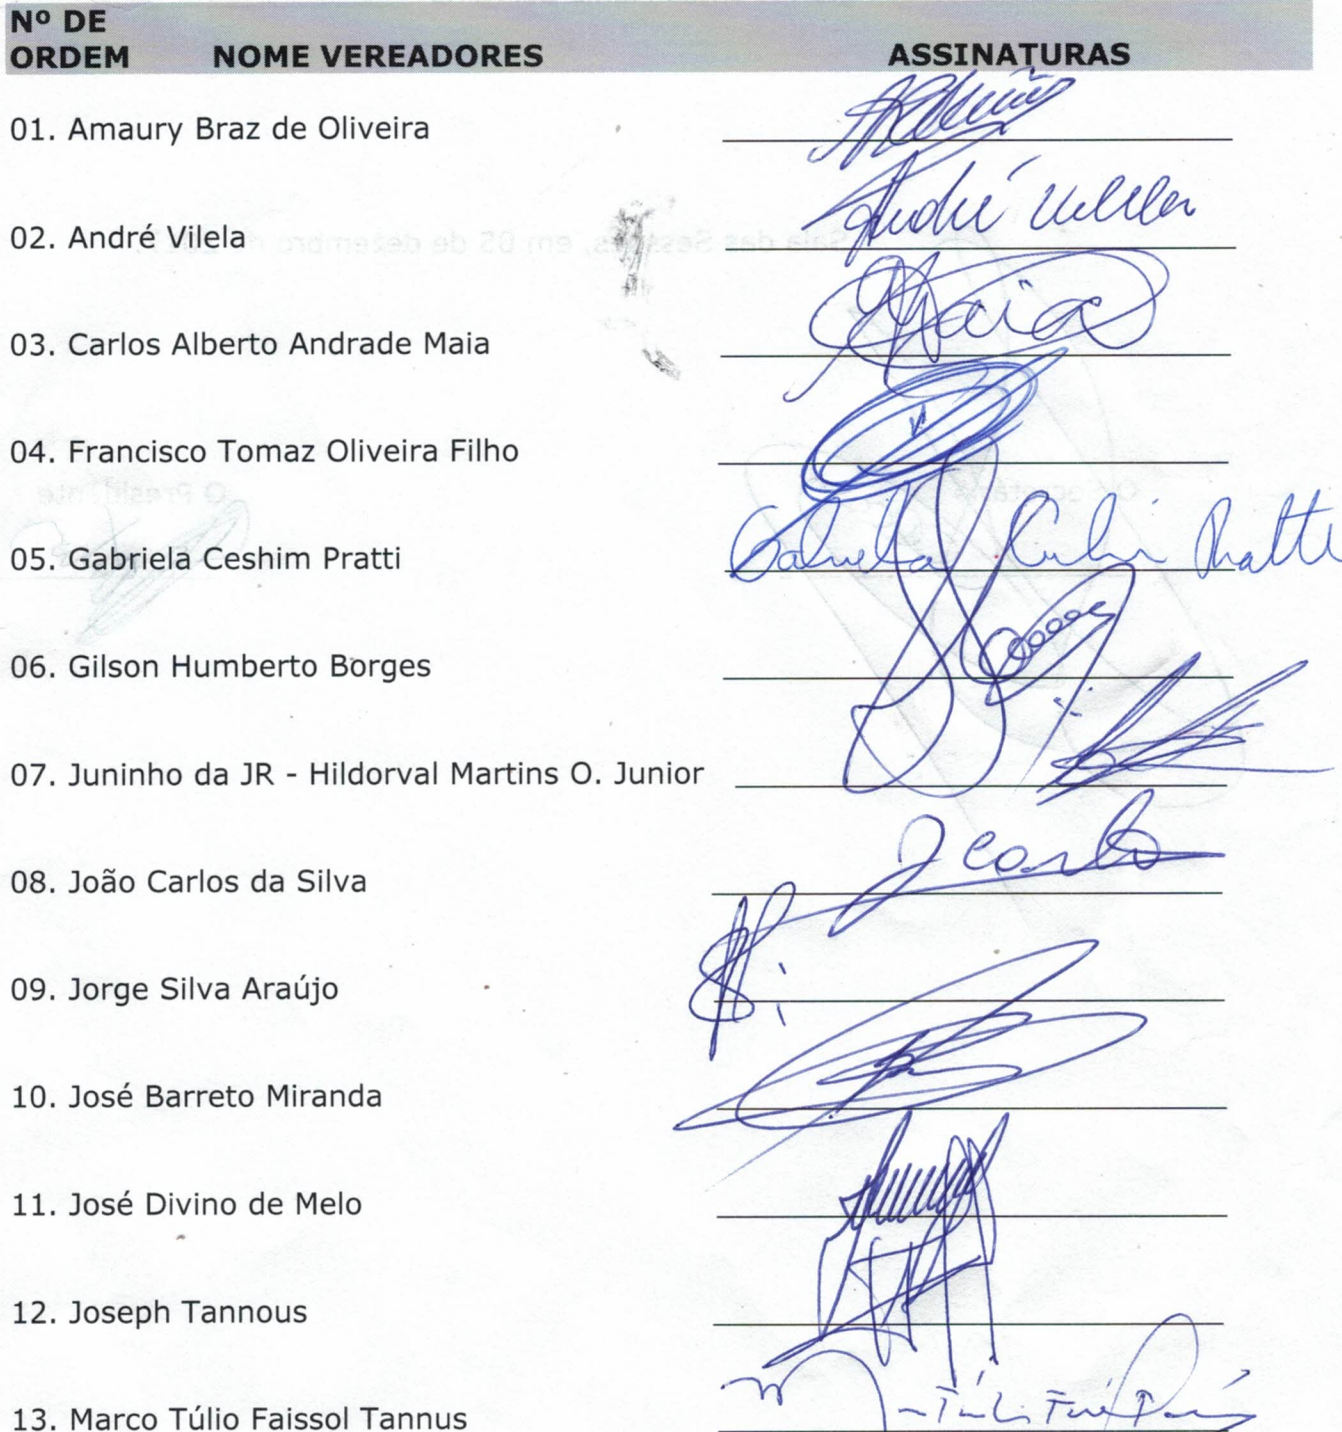 Nº DE
ORDEM NOME VEREADORES ASSINATURAS
01. Amaury Braz de Oliveira
02. André Vilela André Vilela
03. Carlos Alberto Andrade Maia Maia
04. Francisco Tomaz Oliveira Filho
05. Gabriela Ceshim Pratti Gabriela Ceshim Pratti
06. Gilson Humberto Borges
07. Juninho da JR - Hildorval Martins O. Junior
08. João Carlos da Silva J Carlos
09. Jorge Silva Araújo
10. José Barreto Miranda
11. José Divino de Melo
12. Joseph Tannous
13. Marco Túlio Faissol Tannus